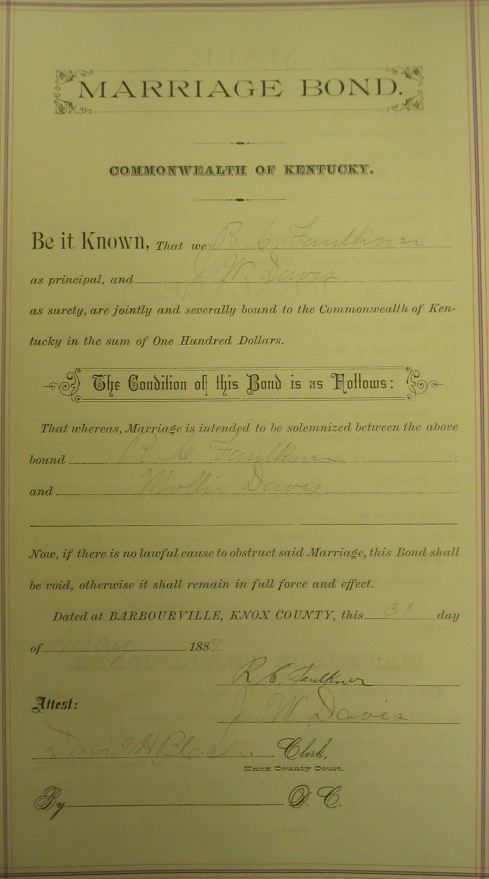 MARRIAGE BOND.
COMMONWEALTH OF KENTUCKY.
Be it Known, That we R. C. Faulkner
as principal, and J. W. Davis
as surety, are jointly and severally bound to the Commonwealth of Ken-
tucky in the sum of One Hundred Dollars.
The Condition of this Bond is as Follows:
That whereas, Marriage is intended to be solemnized between the above
bound R. C. Faulkner
and Mollie Davis
Now, if there is no lawful cause to obstruct said Marriage, this Bond shall
be void, otherwise it shall remain in full force and effect.
Dated at BARBOURVILLE, KNOX COUNTY, this 31 day
of May 1887
R. C. Faulkner
Attest: J. W. Davis
David H Clerk,
Knox County Court.
By D. C.